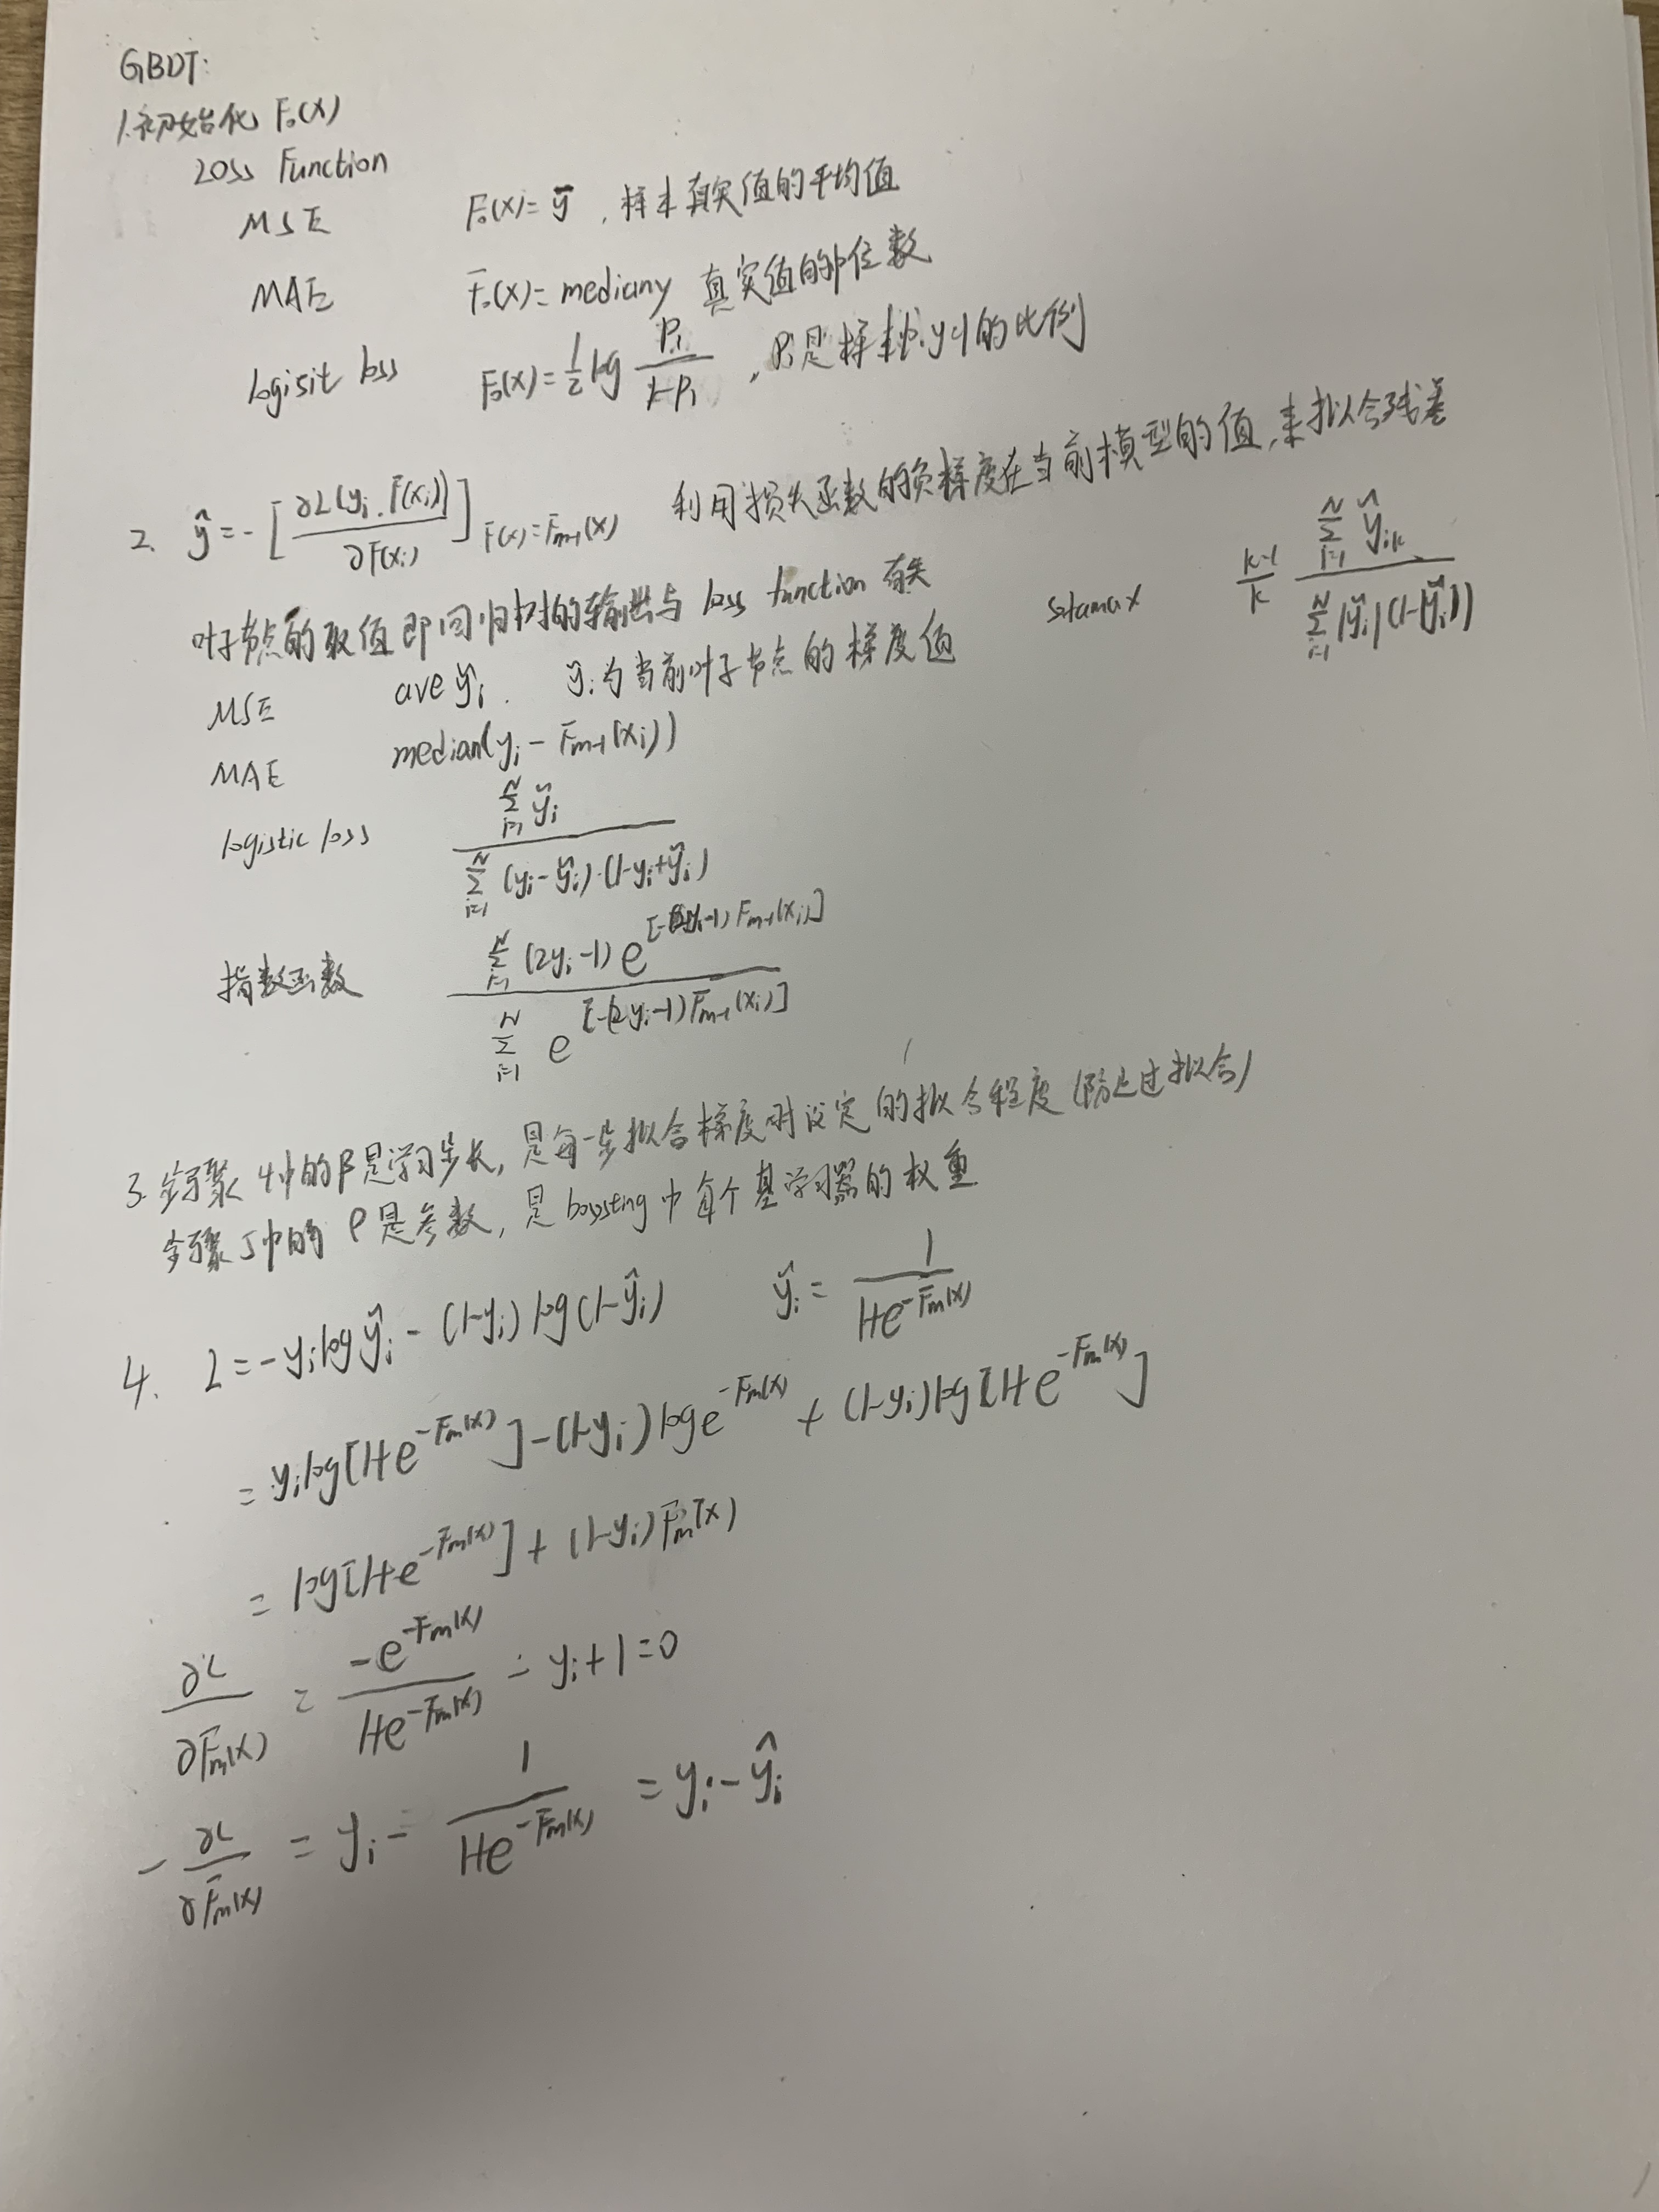 GBDT:
1.初始化 F₀(x)
Loss Function
MSE F₀(x)=ȳ ,样本真实值的平均值
MAE F₀(x)=mediany 真实值的中位数
logisit loss F₀(x)=½log P₁/(1-P₁) ,P₁是样本中y=1的比例
2. ŷ=-[∂L(yᵢ,F(xᵢ))/∂F(xᵢ)]F(x)=Fm-1(x) 利用损失函数的负梯度在当前模型的值,来拟合残差
叶子节点的取值即回归树的输出与 loss function 有关
MSE ave ỹᵢ. ỹᵢ为当前叶子节点的梯度值
softmax (k-1)/k · Σ(i=1..N) ỹᵢₖ / Σ(i=1..N) |ỹᵢ|(1-|ỹᵢ|)
MAE median(yᵢ-Fm-1(xᵢ))
logistic loss Σ(i=1..N) ỹᵢ / Σ(i=1..N) (yᵢ-ỹᵢ)·(1-yᵢ+ỹᵢ)
指数函数 Σ(i=1..N) (2yᵢ-1)e^[-(2yᵢ-1)Fm-1(xᵢ)] / Σ(i=1..N) e^[-(2yᵢ-1)Fm-1(xᵢ)]
3.步骤4中的β是学习步长,是每一步拟合梯度时设定的拟合程度(防止过拟合)
步骤5中的ρ是参数,是boosting中每个基学习器的权重
4. L=-yᵢlogŷᵢ-(1-yᵢ)log(1-ŷᵢ) ŷᵢ=1/(1+e^-Fm(x))
=yᵢlog[1+e^-Fm(x)]-(1-yᵢ)loge^-Fm(x)+(1-yᵢ)log[1+e^-Fm(x)]
=log[1+e^-Fm(x)]+(1-yᵢ)Fm(x)
∂L/∂Fm(x)=-e^-Fm(x)/(1+e^-Fm(x))-yᵢ+1=0
-∂L/∂Fm(x)=yᵢ-1/(1+e^-Fm(x))=yᵢ-ŷᵢ